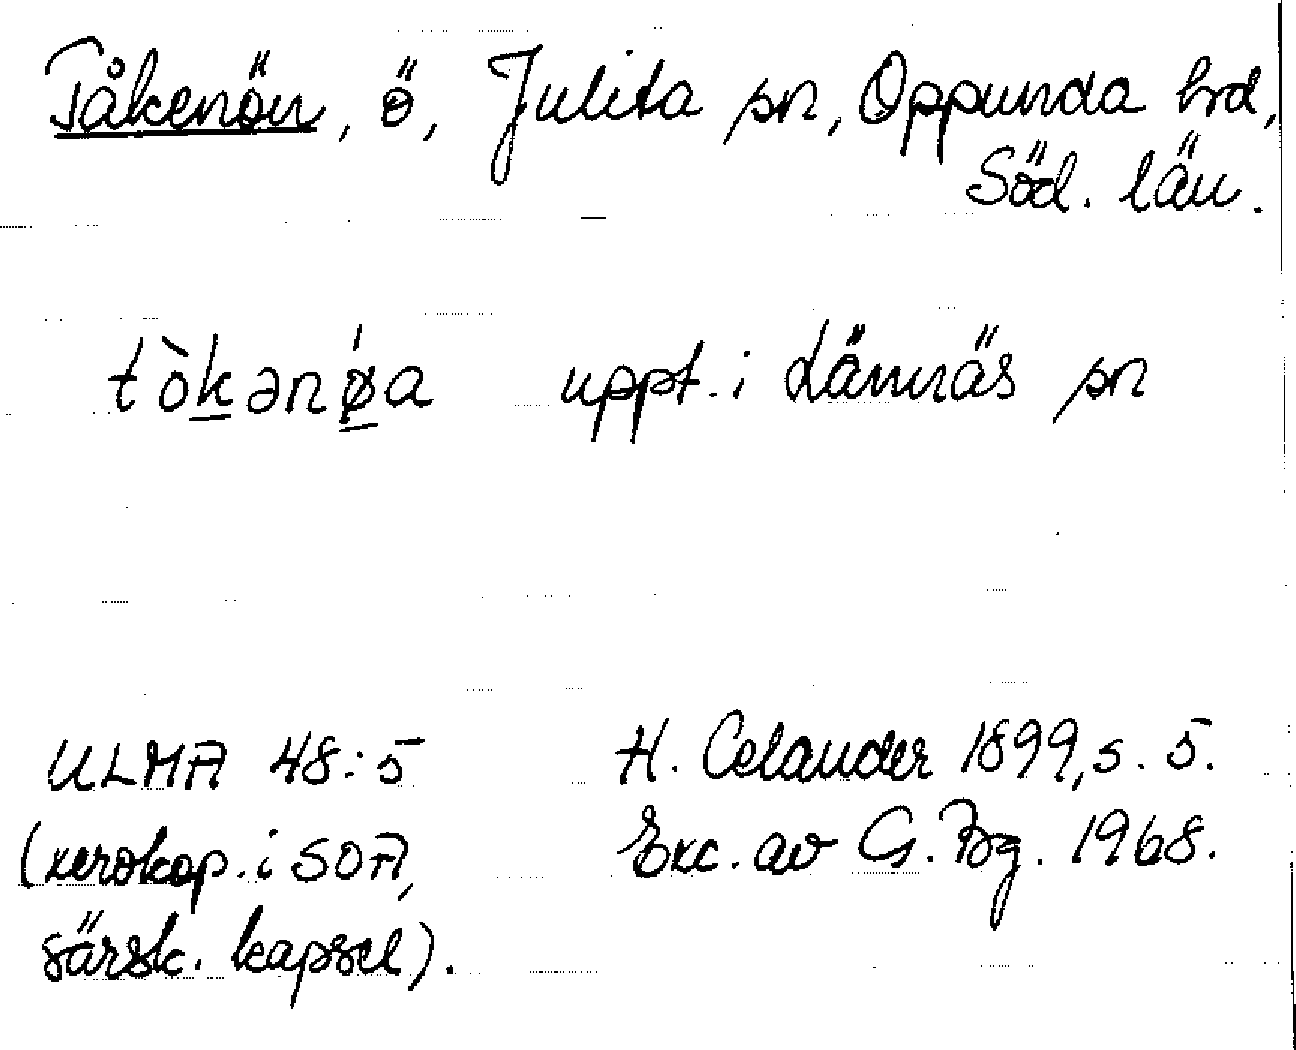 Tåkenön, ö, Julita sn, Oppunda hrd,
Söd. län.
tòkənǿa uppt. i Lännäs sn
ULMA 48:5 H. Celander 1899, s. 5.
(xerokop. i SOA, Exc. av G. Bg. 1968.
särsk. kapsel).